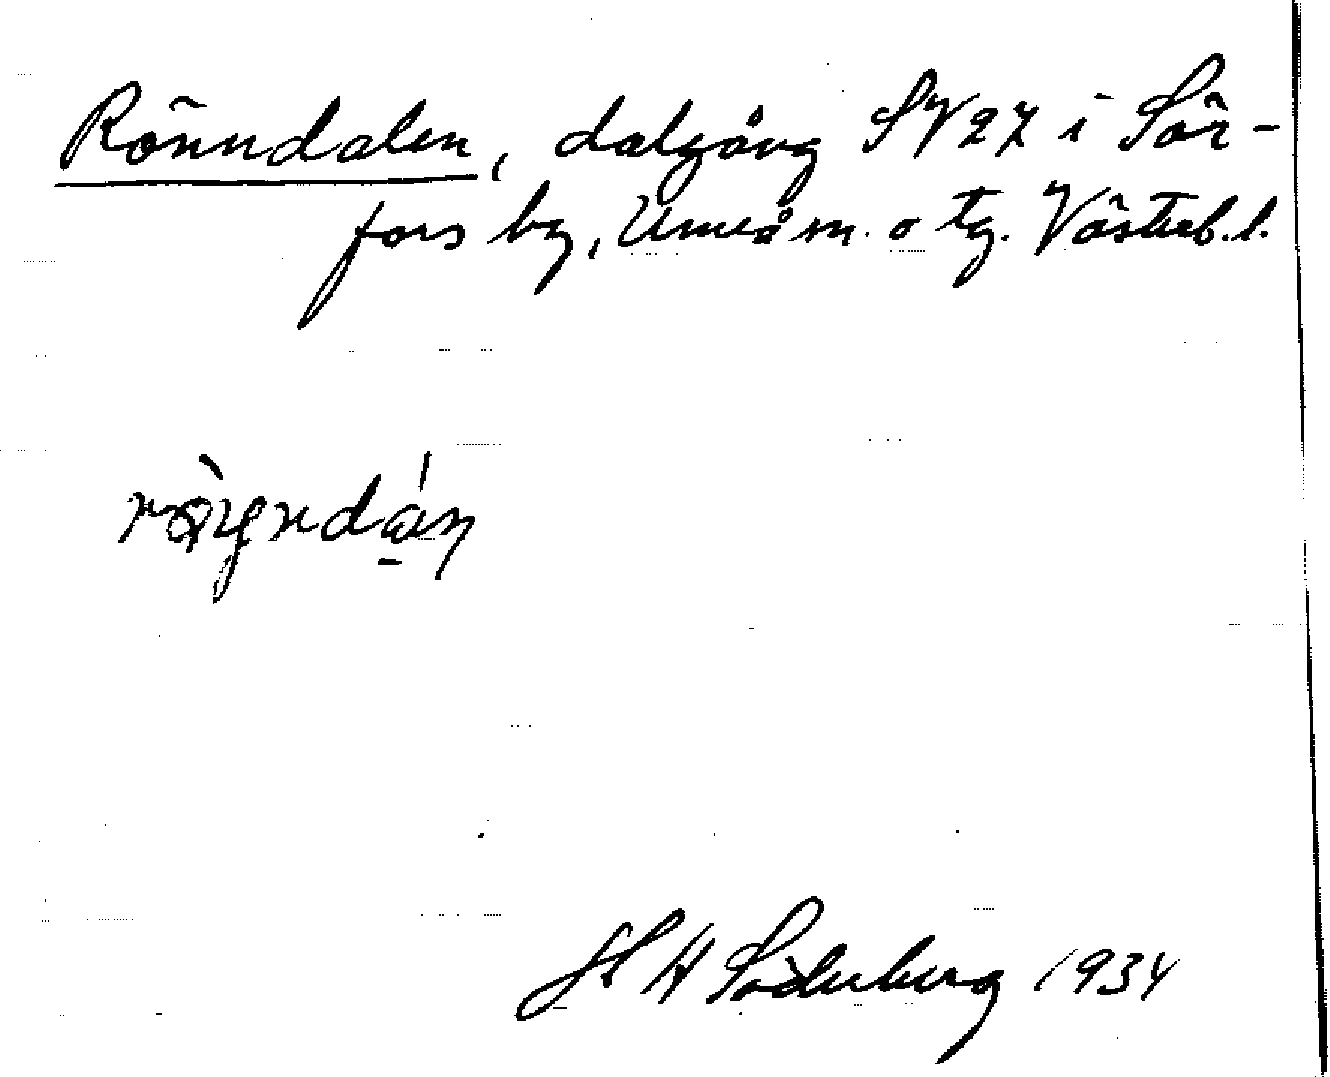 Rönndalen, dalgång SV27 i Sör-
fors by, Umeå m. o tg. Västerb. l.
H Söderberg 1934